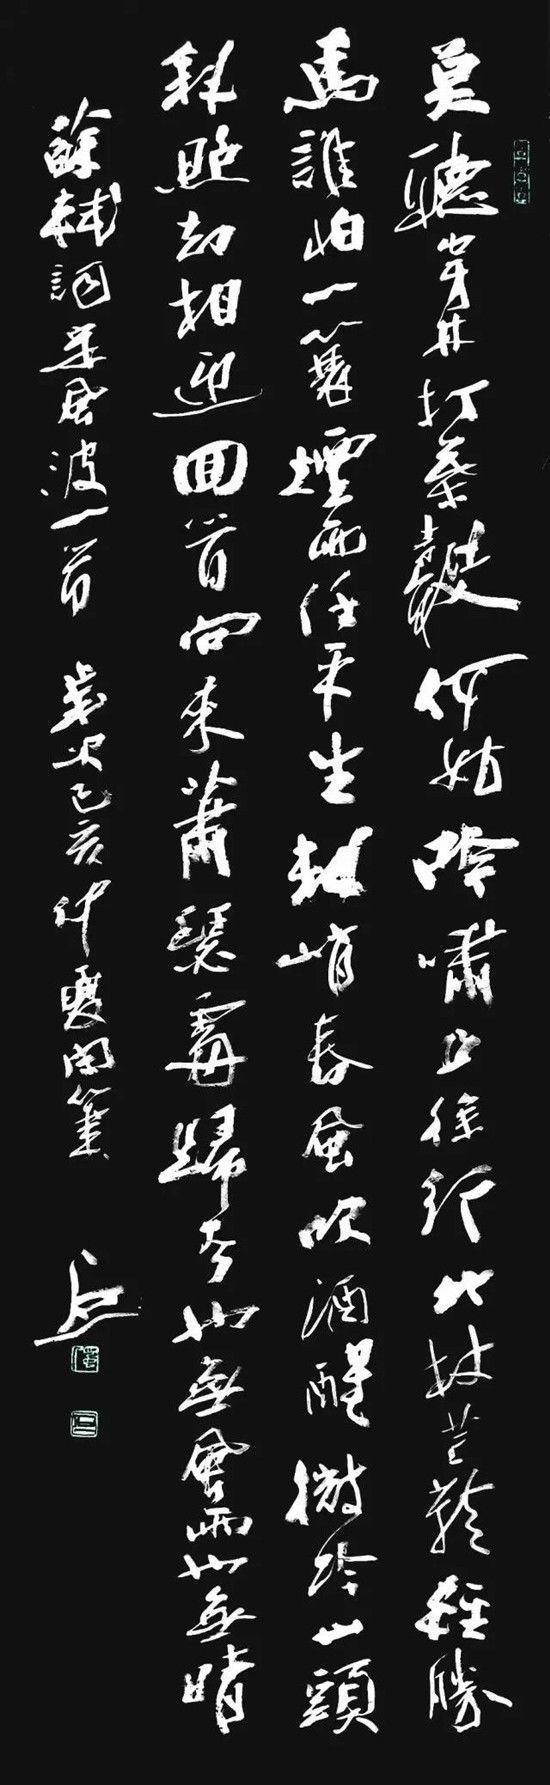 莫聽穿林打葉聲何妨吟嘯且徐行竹杖芒鞋輕勝
馬誰怕一蓑煙雨任平生料峭春風吹酒醒微冷山頭
斜照却相迎回首向來蕭瑟處歸去也無風雨也無晴
蘇軾詞定風波一首 歲次己亥仲夏